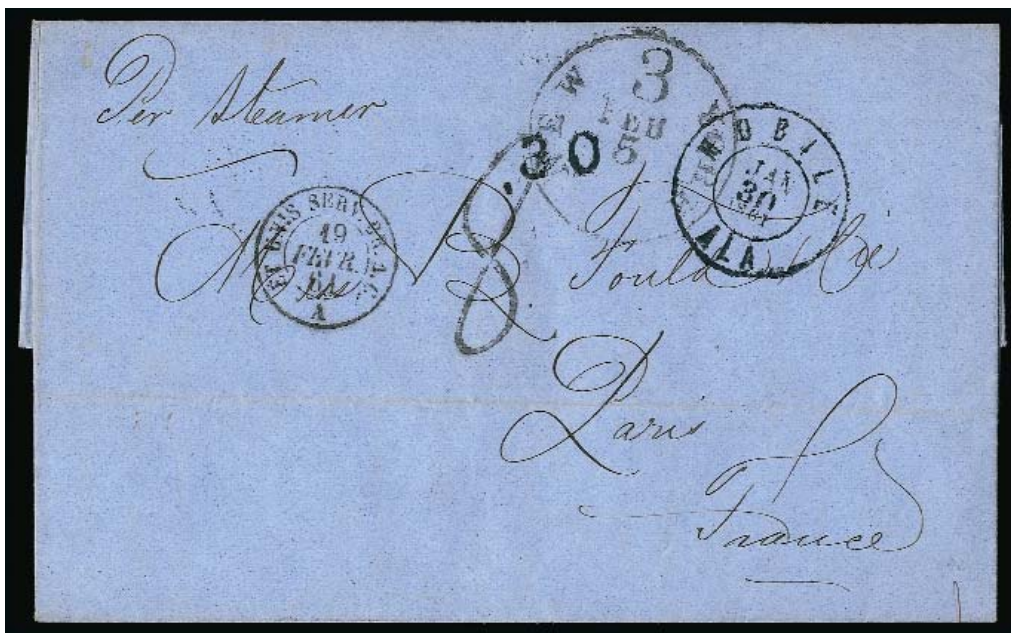 Per Steamer
NEW YORK
3
FEB
5
.30
MOBILE
JAN
30
1861
ALA.
ET. UNIS SERV. BR. A. C.
19
FEVR.
61
A
8
Fould & Co
Paris
France